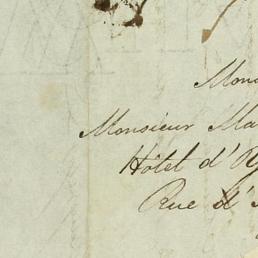 Mons
Monsieur Ma
Hôtel d'
Rue d'